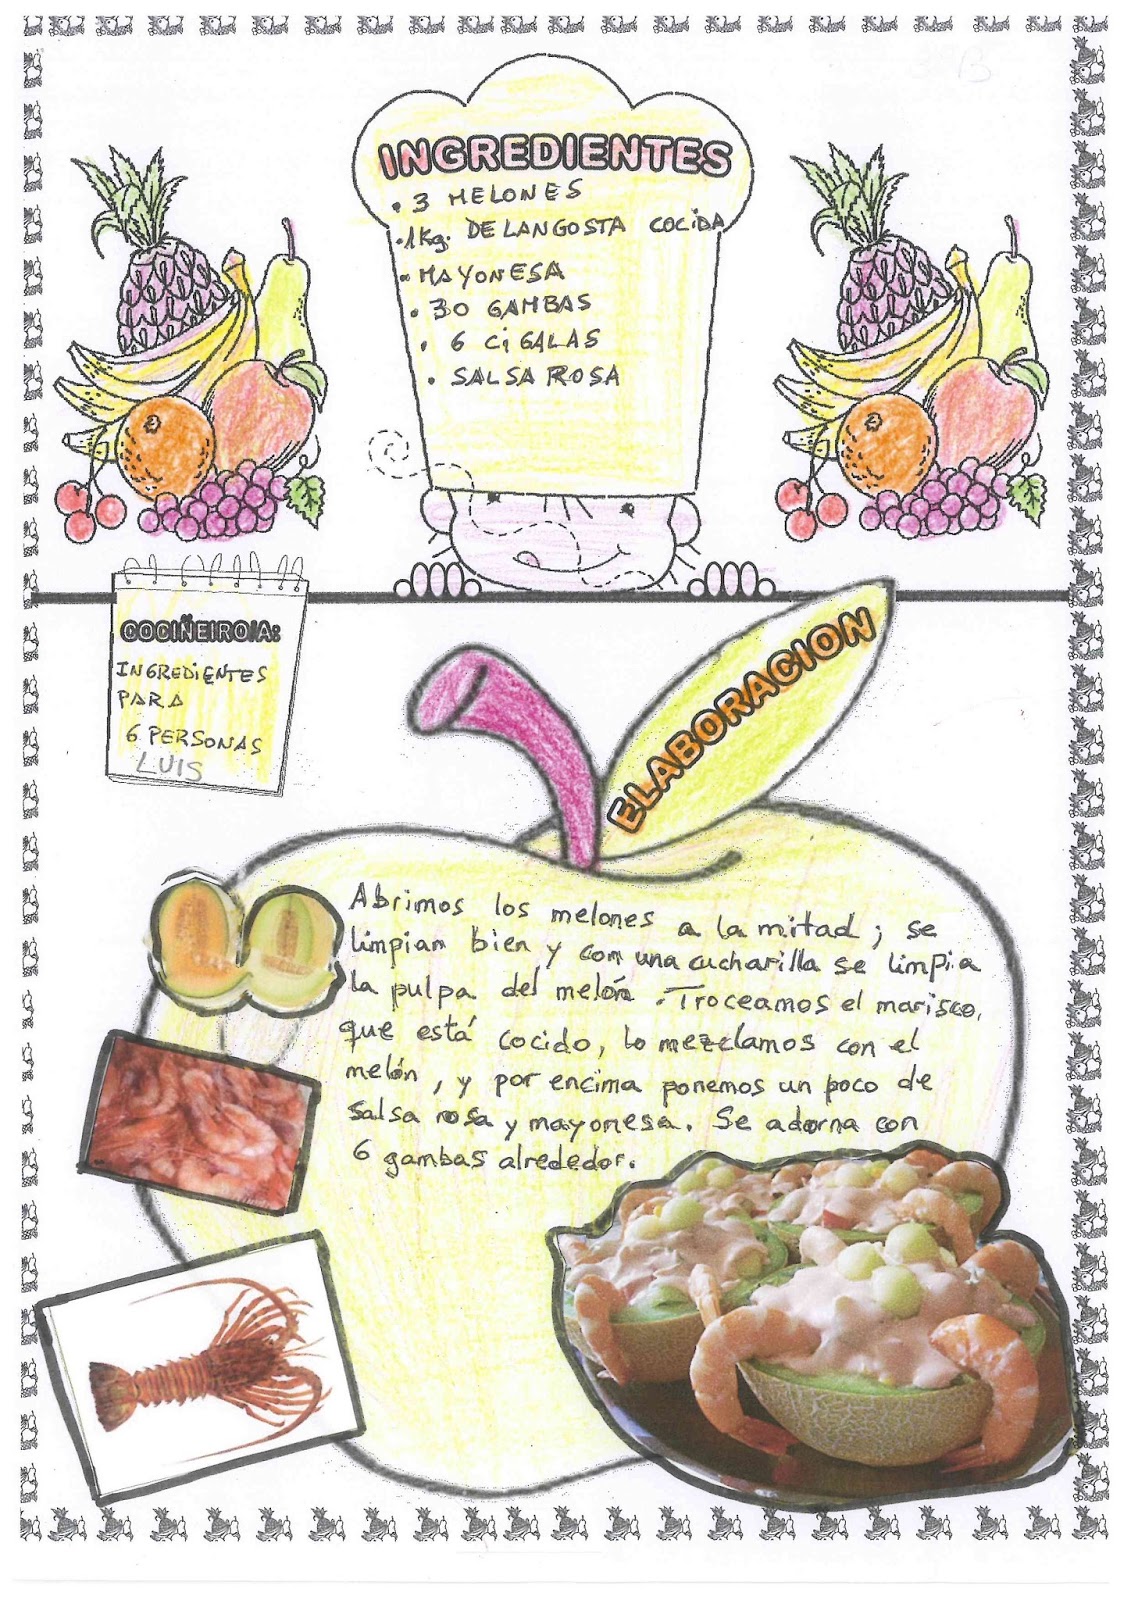 INGREDIENTES
• 3 MELONES
• 1Kg. DE LANGOSTA COCIDA
• MAYONESA
• 30 GAMBAS
• 6 CiGALAS
• SALSA ROSA
COCIÑEIRO/A:
INGREDIENTES
PARA
6 PERSONAS
LUIS
ELABORACION
Abrimos los melones a la mitad; se
limpian bien y con una cucharilla se limpia
la pulpa del melón. Troceamos el marisco,
que está cocido, lo mezclamos con el
melón, y por encima ponemos un poco de
salsa rosa y mayonesa. Se adorna con
6 gambas alrededor.